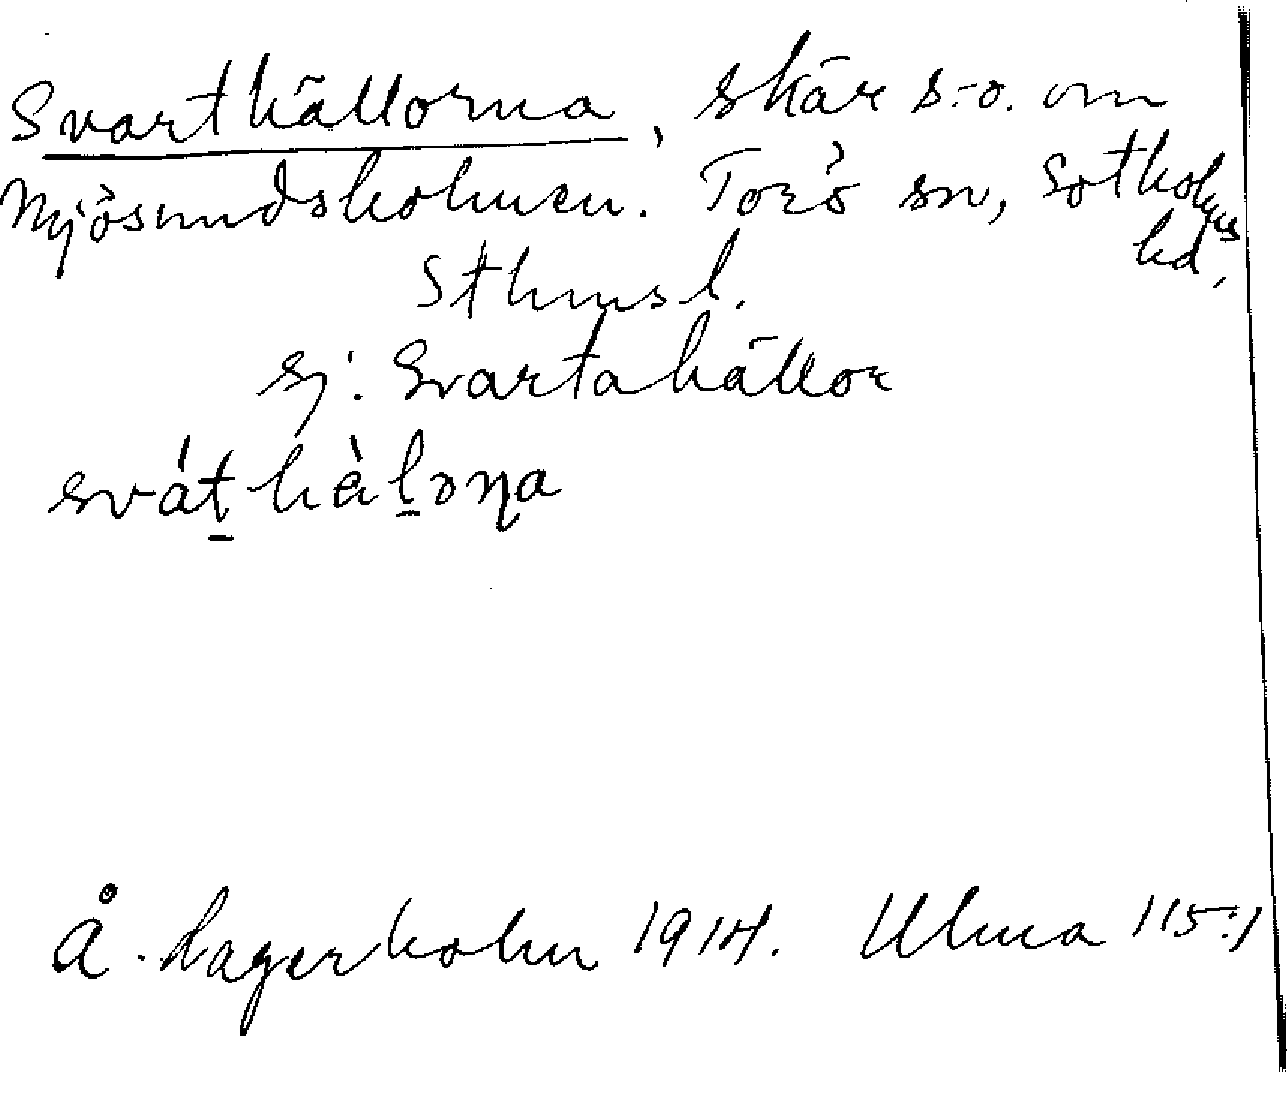 Svarthällorna, skär s.-o. om
Mjösundsholmen. Torö sn, Sotholms
hd,
Sthmsl.
Ej: Svartahällor
sváṯhèḻɔṇa
Å. Lagerholm 1914. Ulma 115:1